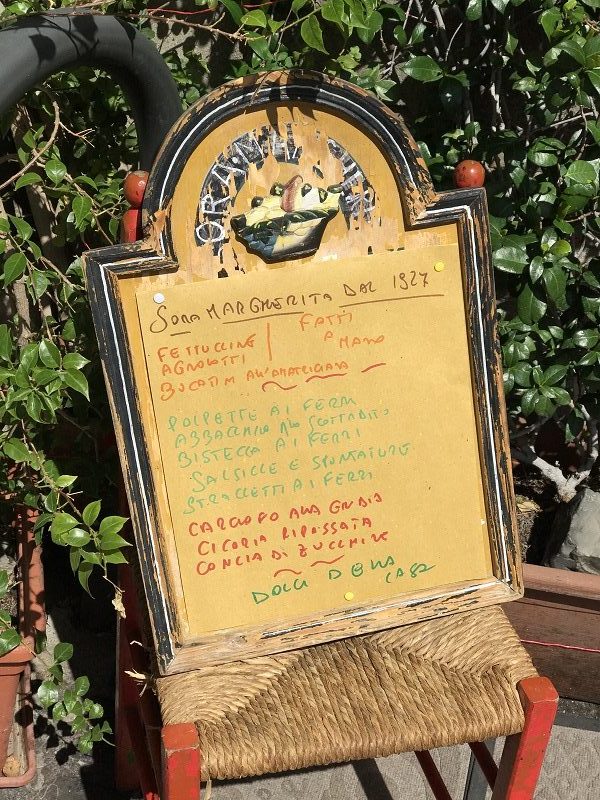 Sora MARGHERITA DAL 1927
FETTUCCINE
AGNOLOTTI
FATTI
A
MANO
BUCATINI ALL'AMATRICIANA
POLPETTE AI FERRI
ABBACCHIO ALLO SCOTTADITO
BISTECCA AI FERRI
SALSICCE E SPUNTATURE
STRACCETTI AI FERRI
CARCIOFO ALLA GIUDIA
CICORIA RIPASSATA
CONCIA DI ZUCCHINE
DOLCI DELLA
CASA